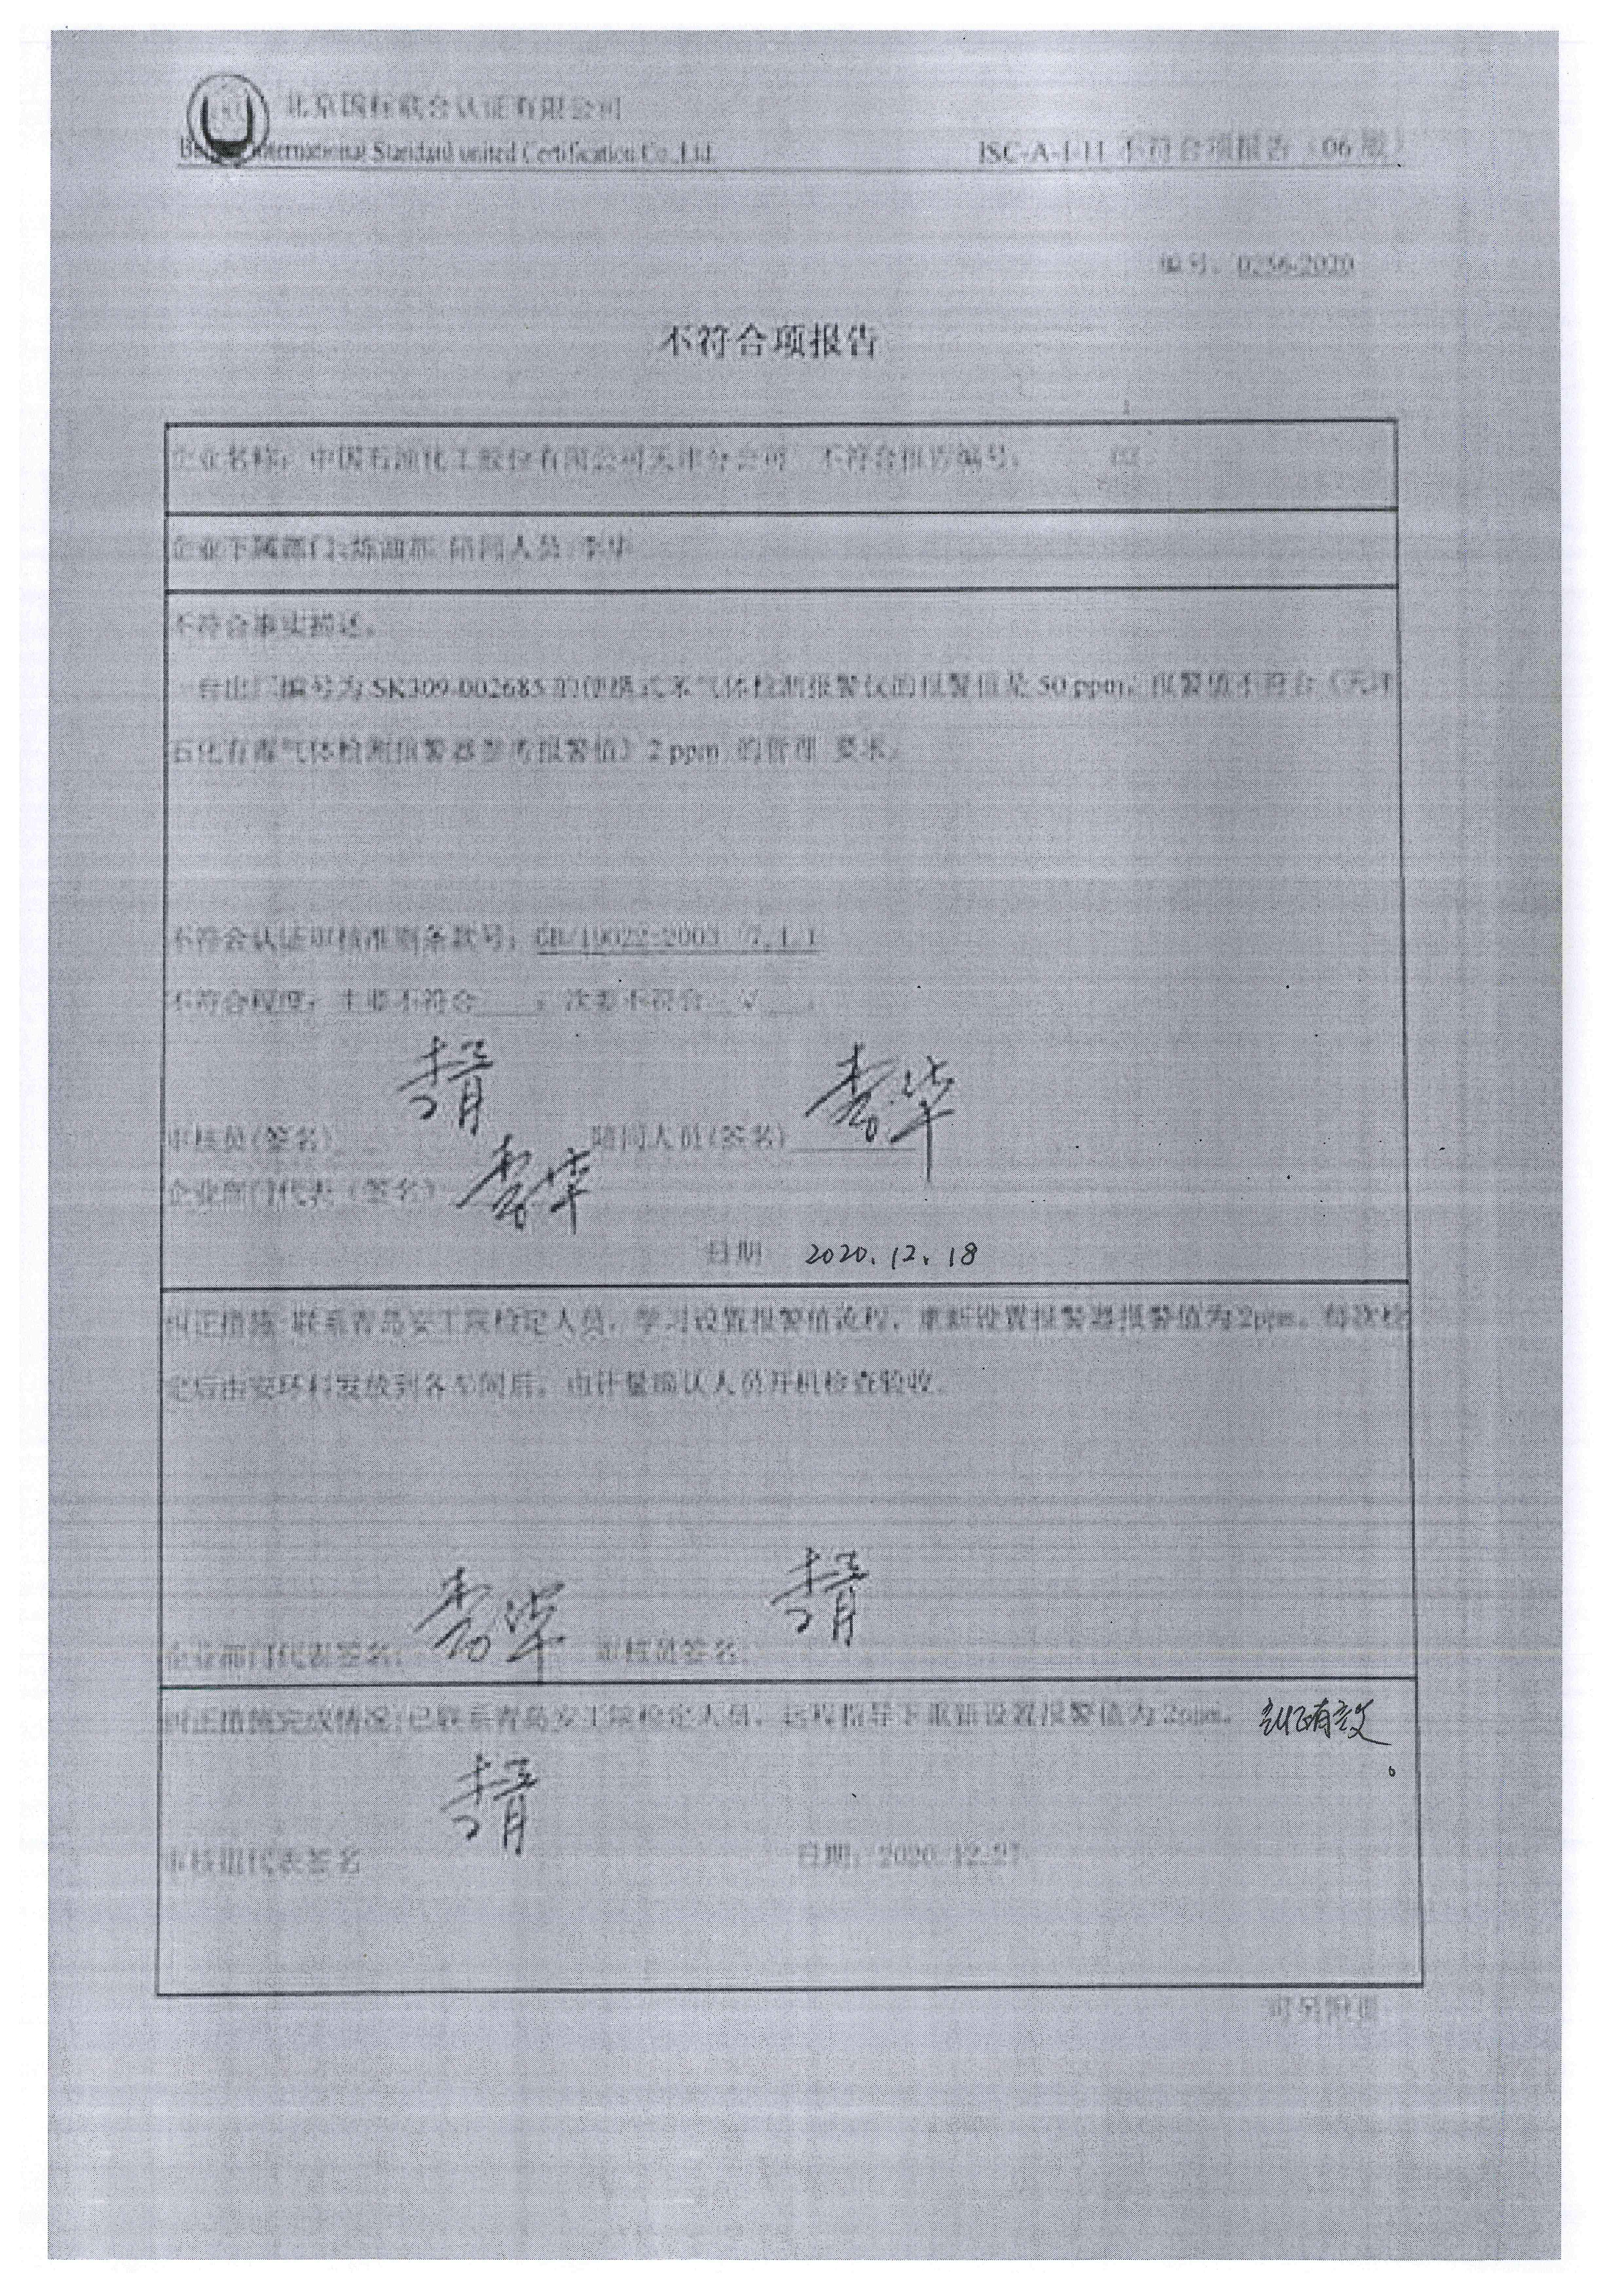 北京国标联合认证有限公司
Beijing International Standard united Certification Co.,Ltd.
ISC-A-I-11 不符合项报告（06版）
编号：0256-2020
不符合项报告
企业名称：中国石油化工股份有限公司天津分公司 不符合报告编号： 02
企业下属部门:炼油部 陪同人员:李华
不符合事实描述：
一台出厂编号为 SK309-002685 的便携式苯气体检测报警仪的报警值是 50 ppm，报警值不符合《天津
石化有毒气体检测报警器参考报警值》2 ppm 的管理 要求。
不符合认证审核准则条款号：GB/19022-2003 /7.1.1
不符合程度：主要不符合 ，次要不符合 √ 。
审核员(签名) 陪同人员(签名) 李华
企业部门代表（签名） 李华
日期 2020.12.18
纠正措施:联系青岛安工院检定人员，学习设置报警值流程，重新设置报警器报警值为2ppm。每次检
定后由安环科发放到各车间后，由计量确认人员开机检查验收。
企业部门代表签名: 李华 审核员签名:
纠正措施完成情况:已联系青岛安工院检定人员，远程指导下重新设置报警值为2ppm。 纠正有效
。
审核组代表签名 日期：2020.12.27
可另附页